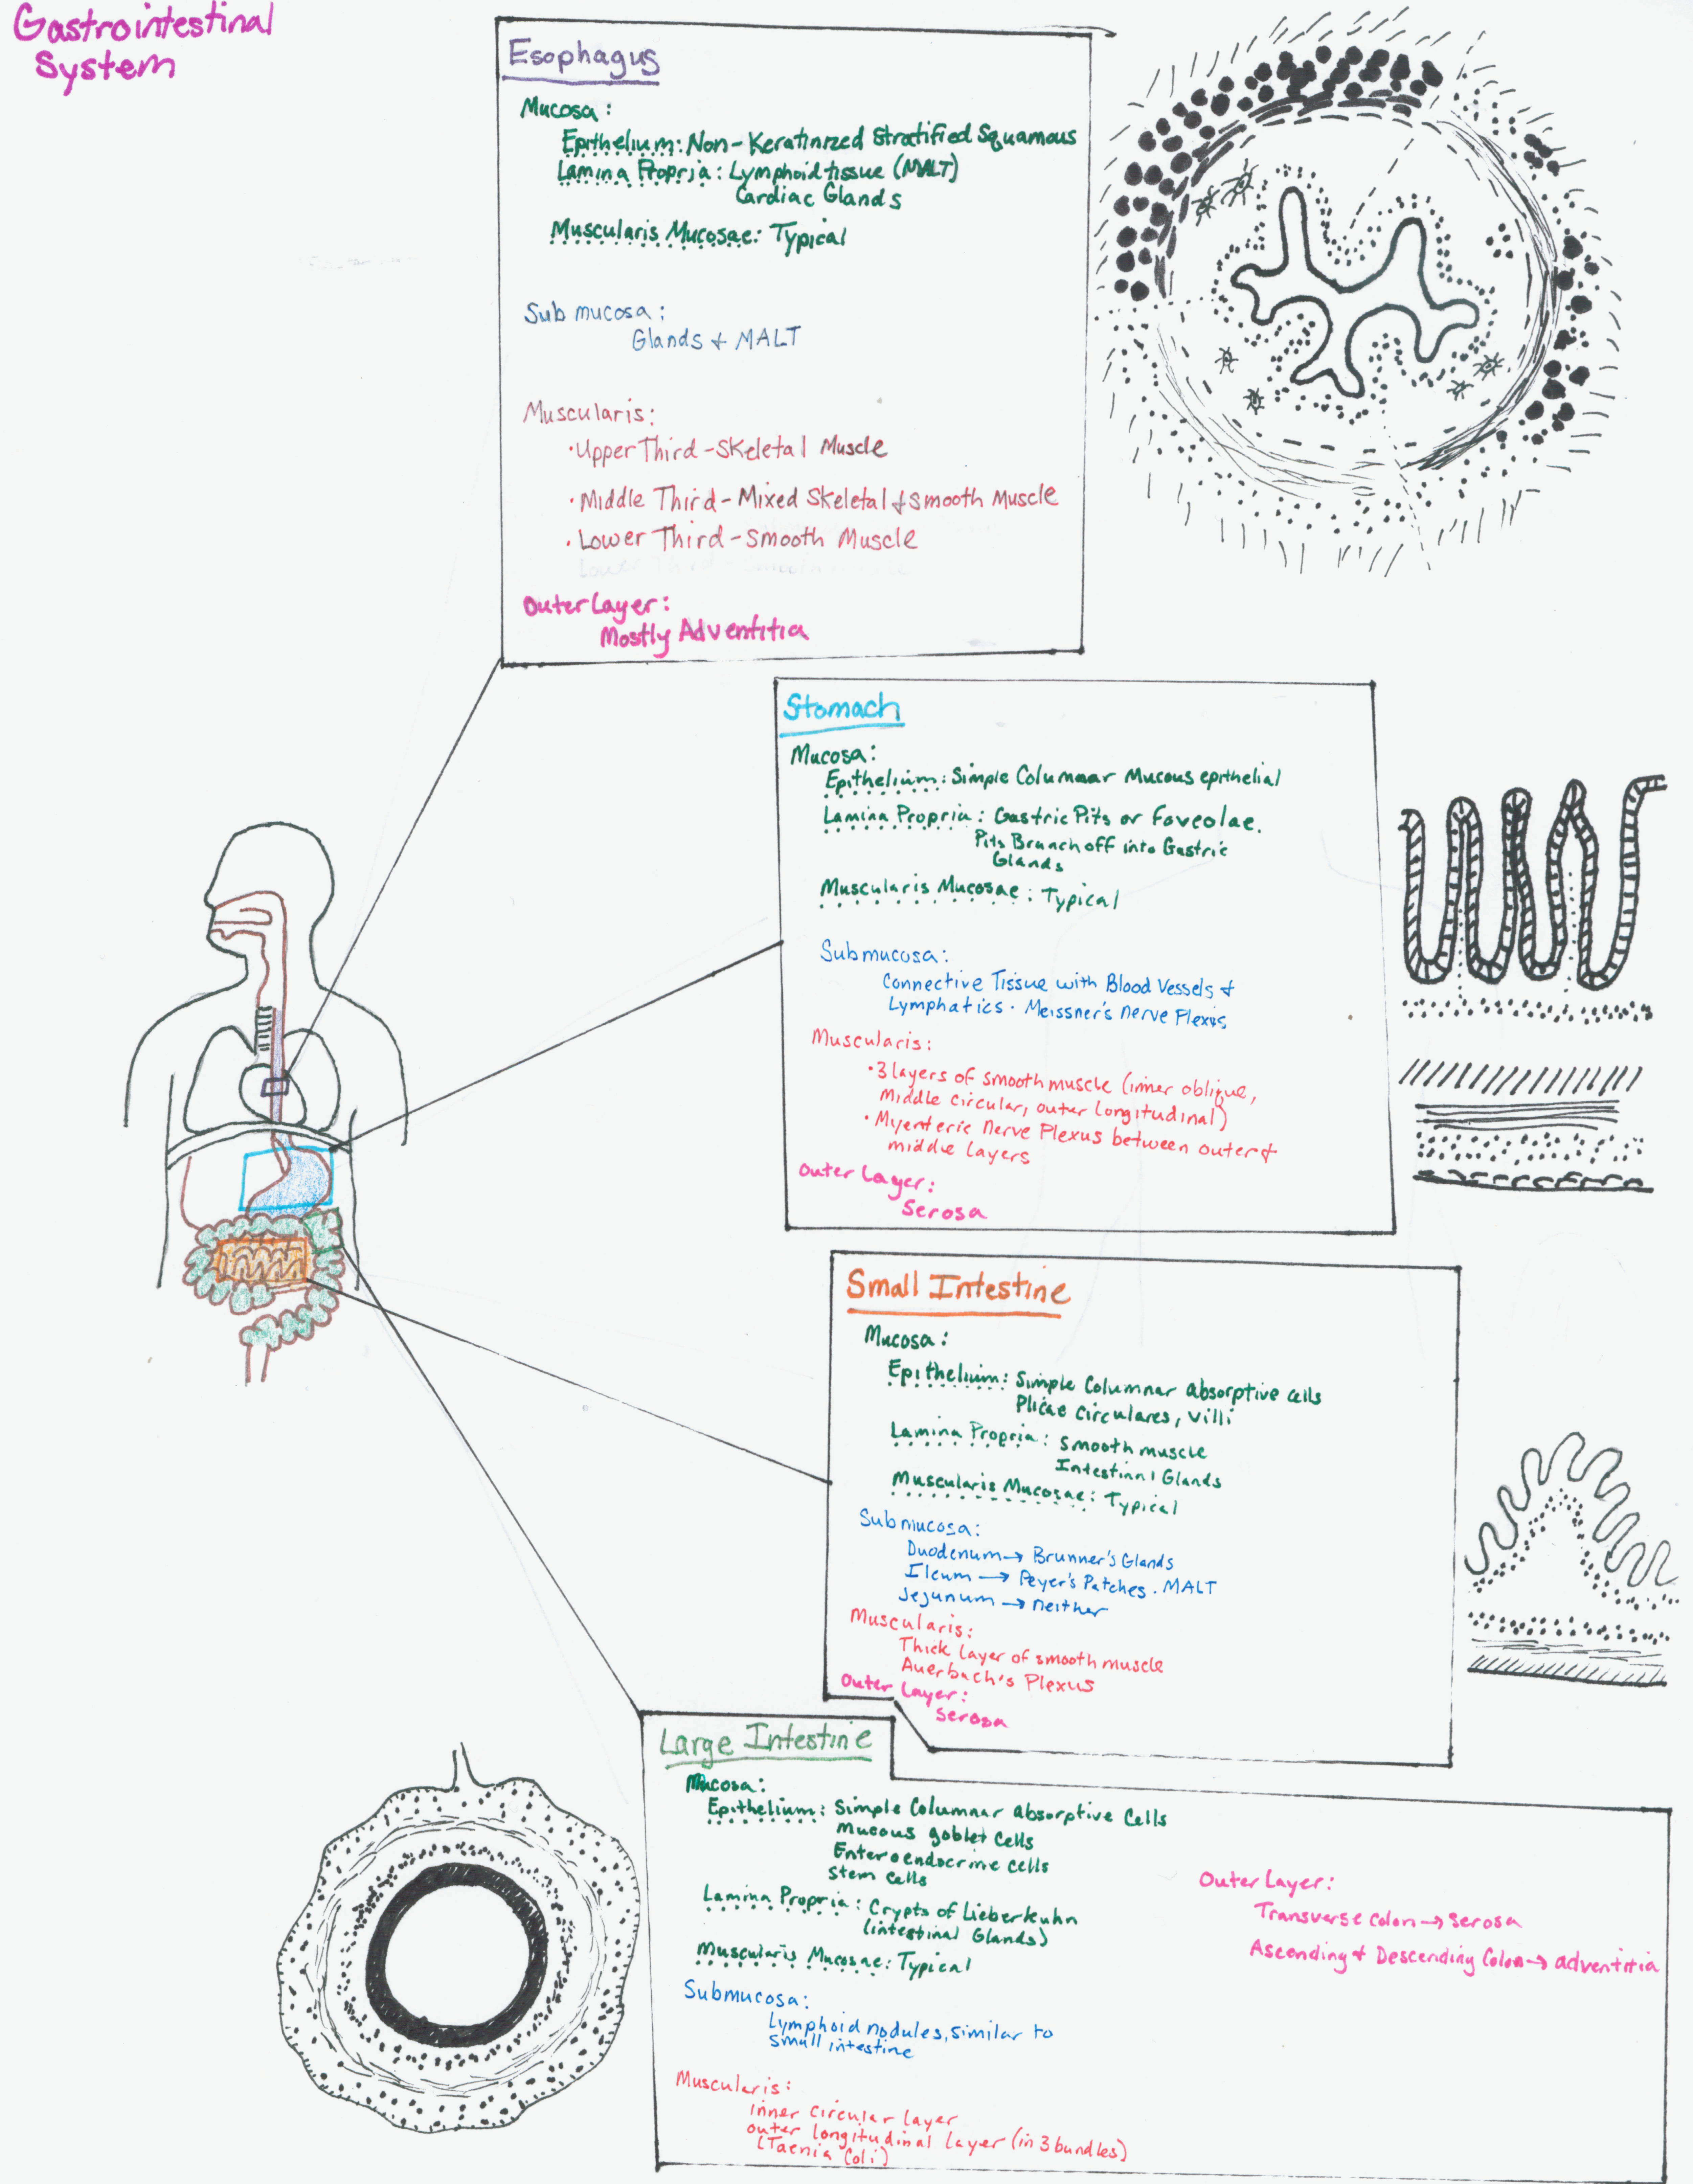 Gastrointestinal
System
Esophagus
Mucosa:
Epithelium: Non-Keratinized Stratified Squamous
Lamina Propria: Lymphoid tissue (MALT)
Cardiac Glands
Muscularis Mucosae: Typical
Submucosa:
Glands & MALT
Muscularis:
• Upper Third - Skeletal Muscle
• Middle Third - Mixed Skeletal & Smooth Muscle
• Lower Third - Smooth Muscle
Outer Layer:
Mostly Adventitia
Stomach
Mucosa:
Epithelium: Simple Columnar Mucous epithelial
Lamina Propria: Gastric Pits or Foveolae.
Pits Branch off into Gastric
Glands
Muscularis Mucosae: Typical
Submucosa:
Connective Tissue with Blood Vessels &
Lymphatics. Meissner's nerve Plexus
Muscularis:
• 3 layers of smooth muscle (inner oblique,
Middle circular, outer longitudinal)
• Myenteric Nerve Plexus between outer &
middle layers
Outer Layer:
Serosa
Small Intestine
Mucosa:
Epithelium: Simple Columnar absorptive cells
Plicae circulares, villi
Lamina Propria: Smooth muscle
Intestinal Glands
Muscularis Mucosae: Typical
Submucosa:
Duodenum → Brunner's Glands
Ileum → Peyer's Patches. MALT
Jejunum → neither
Muscularis:
Thick layer of smooth muscle
Auerbach's Plexus
Outer Layer:
Serosa
Large Intestine
Mucosa:
Epithelium: Simple Columnar absorptive Cells
Mucous goblet cells
Enteroendocrine cells
Stem cells
Lamina Propria: Crypts of Lieberkuhn
(intestinal Glands)
Muscularis Mucosae: Typical
Submucosa:
Lymphoid nodules, similar to
small intestine
Muscularis:
inner circular layer
outer longitudinal layer (in 3 bundles)
(Taenia Coli)
Outer Layer:
Transverse colon → serosa
Ascending & Descending Colon → adventitia